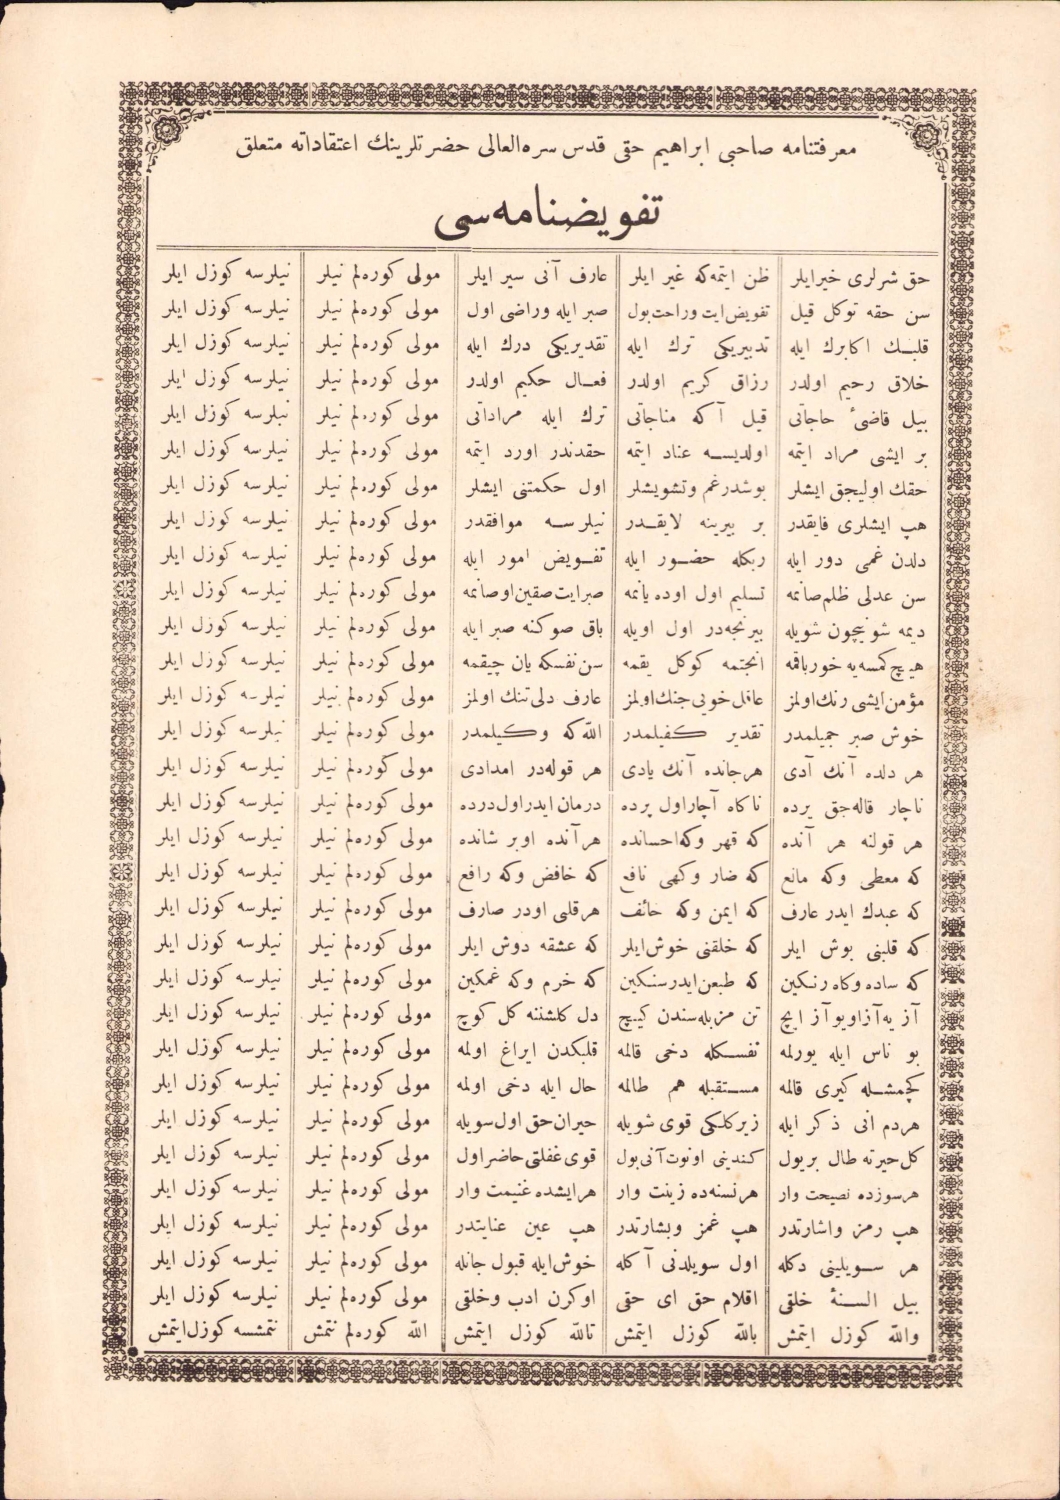 معرفتنامه صاحبی ابراهیم حقی قدس سره‌العالی حضرتلرینك اعتقاداته متعلق
تفویضنامه‌سی
حق شرلری خیرایلر ظن ایتمه‌که غیر ایلر عارف آنی سیر ایلر مولی کوره‌لم نیلر نیلرسه کوزل ایلر
سن حقه توکل قیل تفویض‌ایت وراحت‌بول صبر ایله وراضی اول مولی کوره‌لم نیلر نیلرسه کوزل ایلر
قلبك اکابرك ایله تدبیریکی ترك ایله تقدیریکی درك ایله مولی کوره‌لم نیلر نیلرسه کوزل ایلر
خلاق رحیم اولدر رزاق کریم اولدر فعال حکیم اولدر مولی کوره‌لم نیلر نیلرسه کوزل ایلر
بیل قاضیٔ حاجاتی قیل آکه مناجاتی ترك ایله مراداتی مولی کوره‌لم نیلر نیلرسه کوزل ایلر
بر ایشی مراد ایتمه اولدیسه عناد ایتمه حقدندر اورد ایتمه مولی کوره‌لم نیلر نیلرسه کوزل ایلر
حقك اولیجق ایشلر بوشدرغم وتشویشلر اول حکمتنی ایشلر مولی کوره‌لم نیلر نیلرسه کوزل ایلر
هپ ایشلری فایقدر بر بیرینه لایقدر نیلرسه موافقدر مولی کوره‌لم نیلر نیلرسه کوزل ایلر
دلدن غمی دور ایله ربکله حضور ایله تفویض امور ایله مولی کوره‌لم نیلر نیلرسه کوزل ایلر
سن عدلی ظلم‌صانمه تسلیم اول اوده یانمه صبرایت‌صقین‌اوصانمه مولی کوره‌لم نیلر نیلرسه کوزل ایلر
دیمه شونیچون شویله بیرنجه‌در اول اویله باق صوکنه صبر ایله مولی کوره‌لم نیلر نیلرسه کوزل ایلر
هیچ‌کمسه‌یه خورباقمه انجتمه کوکل یقمه سن‌نفسکه یان چیقمه مولی کوره‌لم نیلر نیلرسه کوزل ایلر
مؤمن‌ایشی رنك‌اولمز عاقل‌خویی‌جنك‌اولمز عارف دلی‌تنك اولمز مولی کوره‌لم نیلر نیلرسه کوزل ایلر
خوش صبر جمیلمدر تقدیر کفیلمدر اللّه‌که وکیلمدر مولی کوره‌لم نیلر نیلرسه کوزل ایلر
هر دلده آنك آدی هرجانده آنك یادی هر قوله‌در امدادی مولی کوره‌لم نیلر نیلرسه کوزل ایلر
ناچار قاله‌جق یرده ناکاه آچاراول پرده درمان ایدراول‌درده مولی کوره‌لم نیلر نیلرسه کوزل ایلر
هر قولنه هر آنده که قهر وکه‌احسانده هرآنده اوبر شانده مولی کوره‌لم نیلر نیلرسه کوزل ایلر
که معطی وکه مانع که ضار وکهی نافع که خافض وکه رافع مولی کوره‌لم نیلر نیلرسه کوزل ایلر
که عبدك ایدر عارف که ایمن وکه خائف هرقلبی اودر صارف مولی کوره‌لم نیلر نیلرسه کوزل ایلر
که قلبنی بوش ایلر که خلقنی خوش‌ایلر که عشقه دوش ایلر مولی کوره‌لم نیلر نیلرسه کوزل ایلر
که ساده وکاه رنکین که طبعن‌ایدرسنکین که خرم وکه غمکین مولی کوره‌لم نیلر نیلرسه کوزل ایلر
آز یه‌آزاویوآز ایچ تن مزبله‌سندن کیچ دل کلشننه کل کوچ مولی کوره‌لم نیلر نیلرسه کوزل ایلر
بو ناس ایله یورلمه نفسکله دخی قالمه قلبکدن ایراغ اولمه مولی کوره‌لم نیلر نیلرسه کوزل ایلر
کچمشله کیری قالمه مستقبله هم طالمه حال ایله دخی اولمه مولی کوره‌لم نیلر نیلرسه کوزل ایلر
هردم انی ذکر ایله زیرکلکی قوی شویله حیران‌حق اول‌سویله مولی کوره‌لم نیلر نیلرسه کوزل ایلر
کل‌حیرته طال بریول کندینی اونوت‌آنی‌بول قوی‌غفلتی‌حاضراول مولی کوره‌لم نیلر نیلرسه کوزل ایلر
هرسوزده نصیحت وار هرنسنه‌ده زینت وار هرایشده غنیمت وار مولی کوره‌لم نیلر نیلرسه کوزل ایلر
هپ رمز واشارتدر هپ غمز وبشارتدر هپ عین عنایتدر مولی کوره‌لم نیلر نیلرسه کوزل ایلر
هر سویلینی دکله اول سویلدنی آکله خوش‌ایله قبول جانله مولی کوره‌لم نیلر نیلرسه کوزل ایلر
بیل السنهٔ خلقی اقلام حق ای حقی اوکرن ادب وخلقی مولی کوره‌لم نیلر نیلرسه کوزل ایلر
واللّه کوزل ایتمش باللّه کوزل ایتمش تاللّه کوزل ایتمش اللّه کوره‌لم نتمش نتمشسه کوزل‌ایتمش